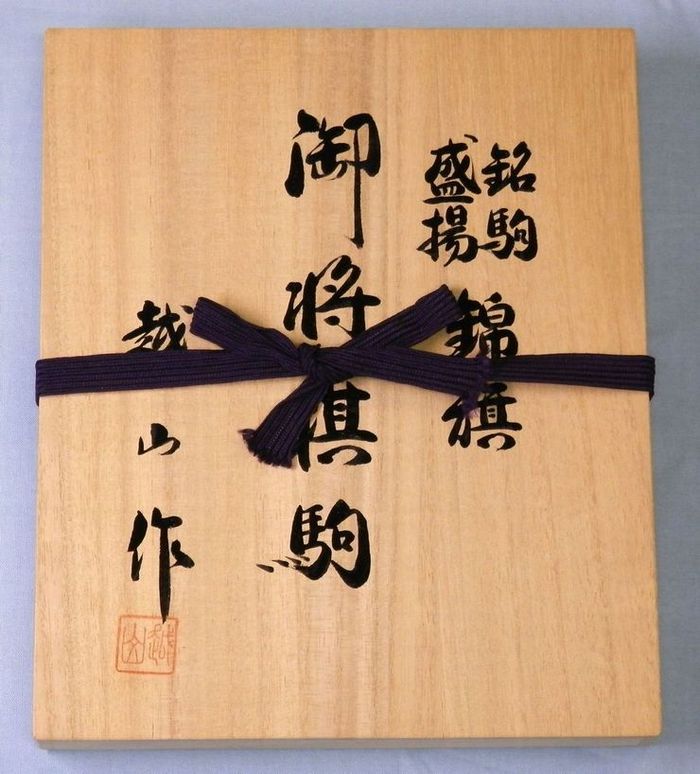 銘駒
盛揚
錦旗
御将棋駒
越山作
越山